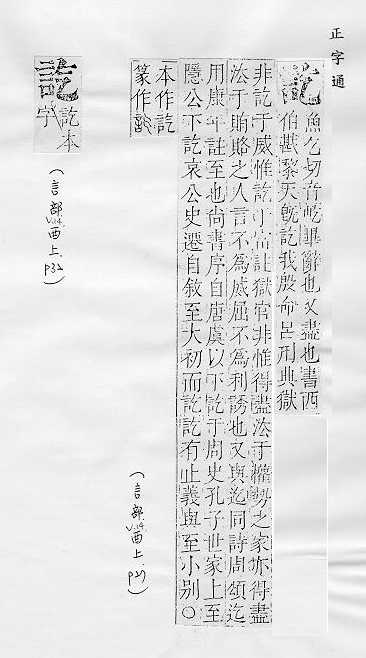 正字通
訖
魚乞切音屹畢辭也又盡也書西
伯戡黎天旣訖我殷命呂刑典獄
非訖于威惟訖于富註獄官非惟得盡法于權勢之家亦得盡
法于賄賂之人言不為威屈不為利誘也又與迄同詩周頌迄
用康年註至也尚書序自唐虞以下訖于周史孔子世家上至
隱公下訖哀公史遷自敘至大初而訖訖有止義與至小别○
本作訖
篆作
(言部V.14.酉上.P27)
訖本
字
(言部V.14.酉上.P32)